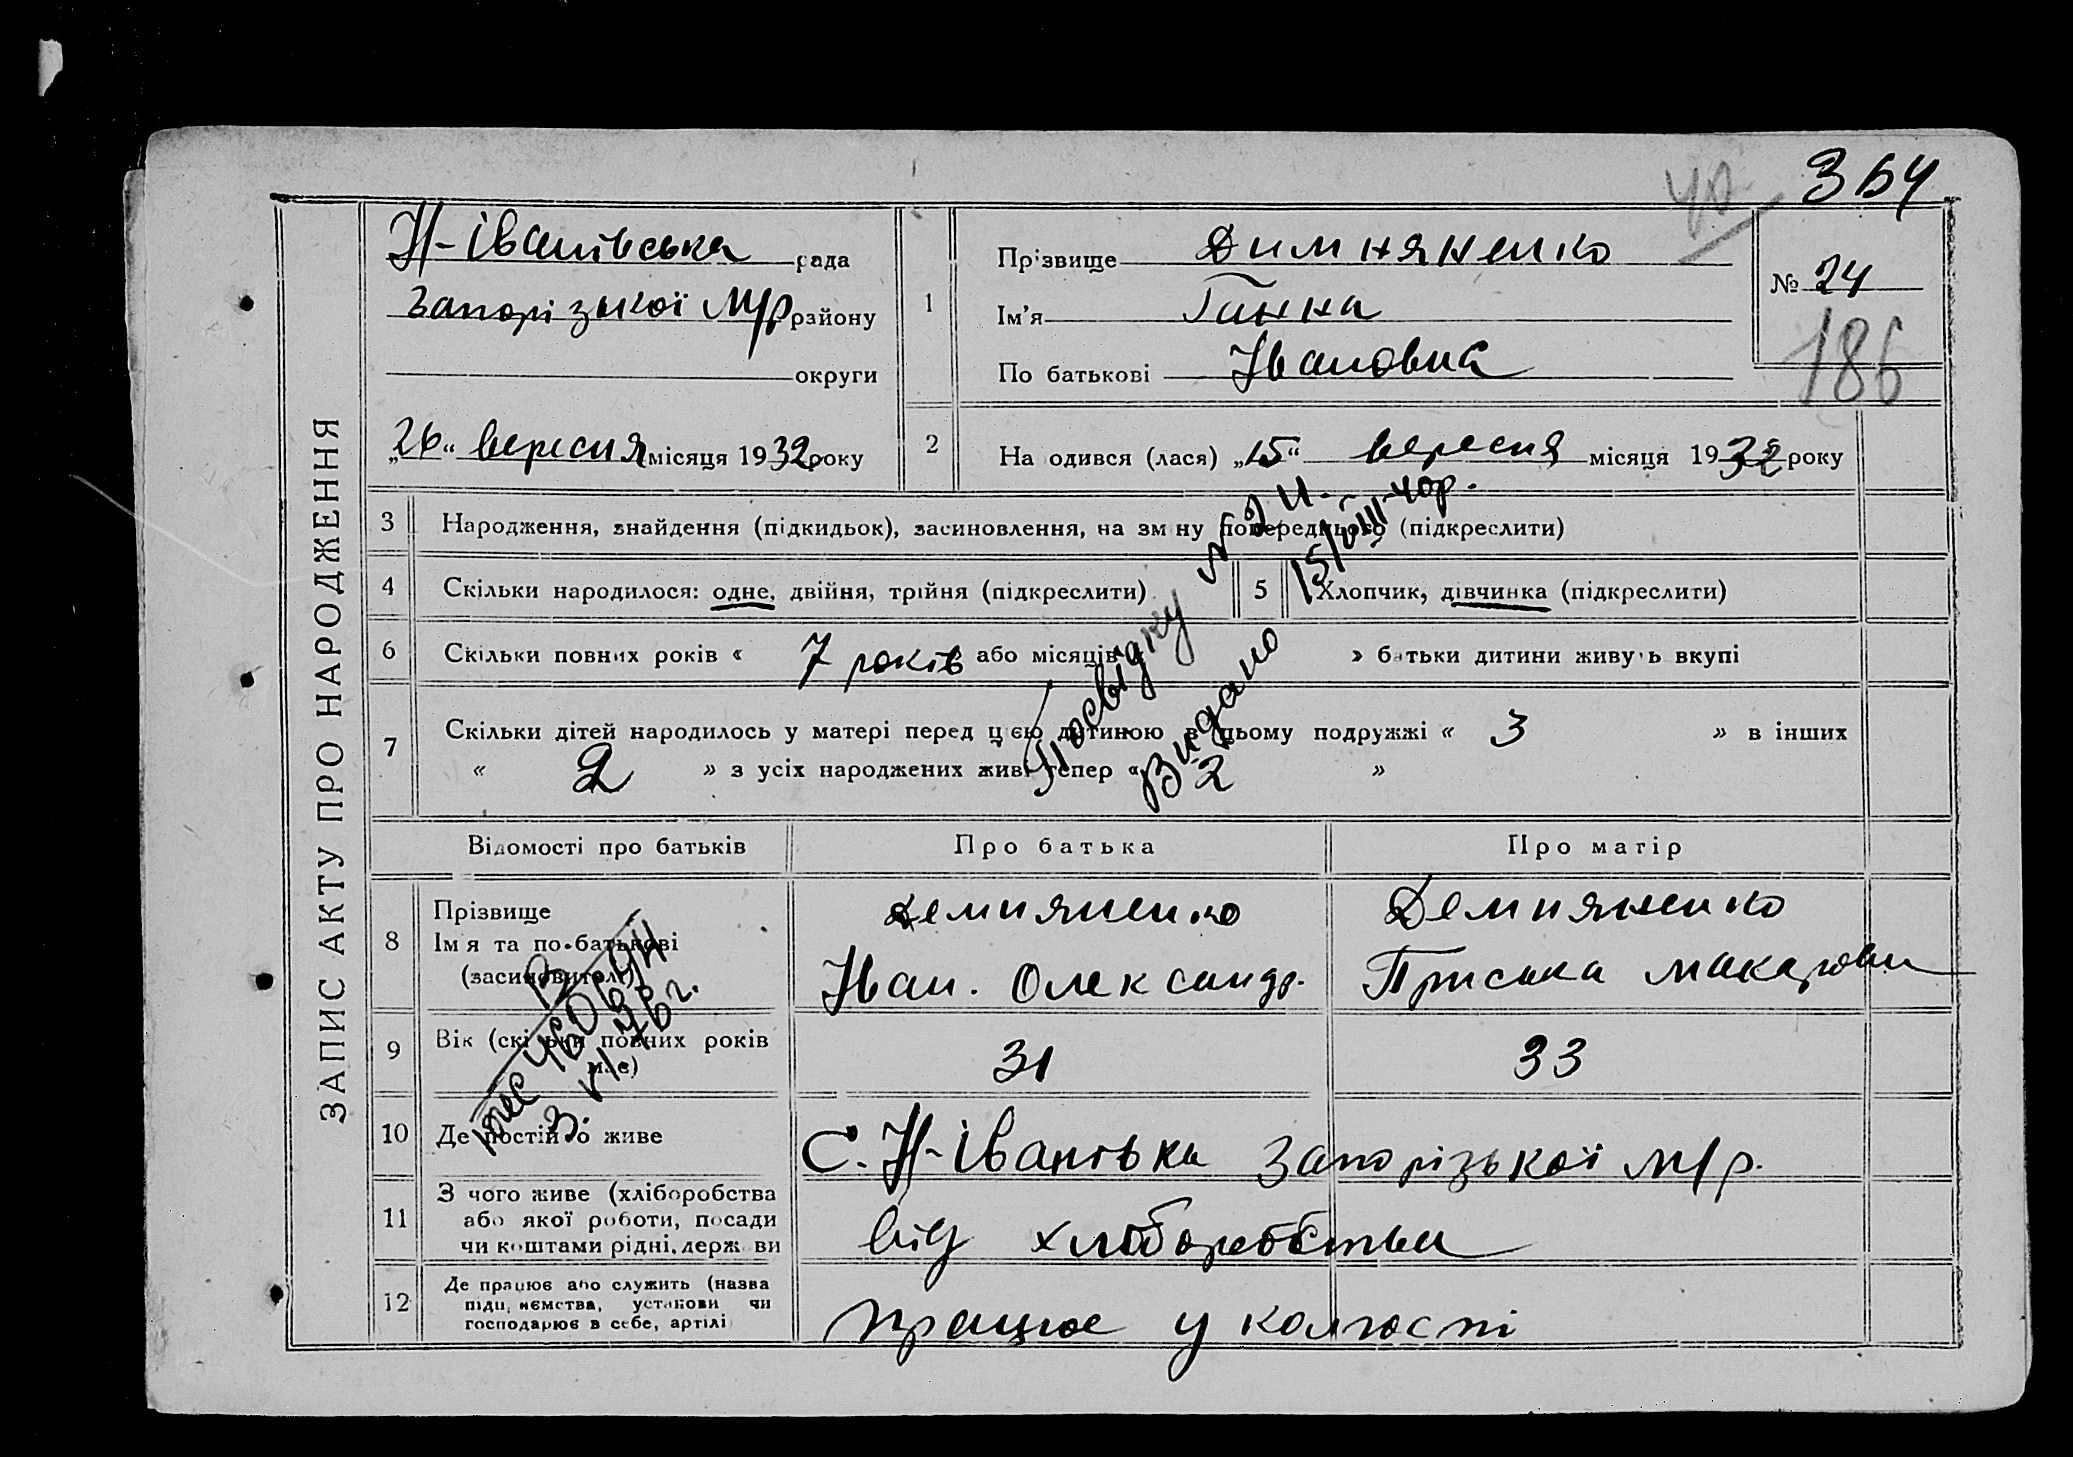 364
Н-Іванівська рада
Запорізької М/р району
округи
„26“ вересня місяця 1932 року
1
Прізвище Димняненко
Ім’я Ганна
По батькові Івановна
№ 24
186
2
На одився (лася) „15“ вересня місяця 1932 року
ЗАПИС АКТУ ПРО НАРОДЖЕННЯ
3 Народження, знайдення (підкидьок), засиновлення, на зм ну попереднього (підкреслити)
4 Скільки народилося: одне, двійня, трійня (підкреслити)
5 Хлопчик, дівчинка (підкреслити)
6 Скільки повних років « 7 років або місяців » батьки дитини живуть вкупі
7 Скільки дітей народилось у матері перед цією дитиною в цьому подружжі « 3 » в інших
« 2 » з усіх народжених живі тепер « 2 »
Посвідку № 24.
Видано 15/VIII-40р.
Відомості про батьків
Про батька
Про матір
8 Прізвище
Ім я та по-батькові
(засиновител.)
Демпяненко
Иван. Олександр.
Демпяненко
Приська Макаровн
9 Вік (скільки повних років
має)
31
33
10 Де постійно живе
С. Н-Іванівка Запорізької м/р.
11 З чого живе (хліборобства
або якої роботи, посади
чи коштами рідні, держави
від хліборобства
12 Де працює або служить (назва
підприємства, установи чи
господарює в себе, артілі
працює у колгоспі